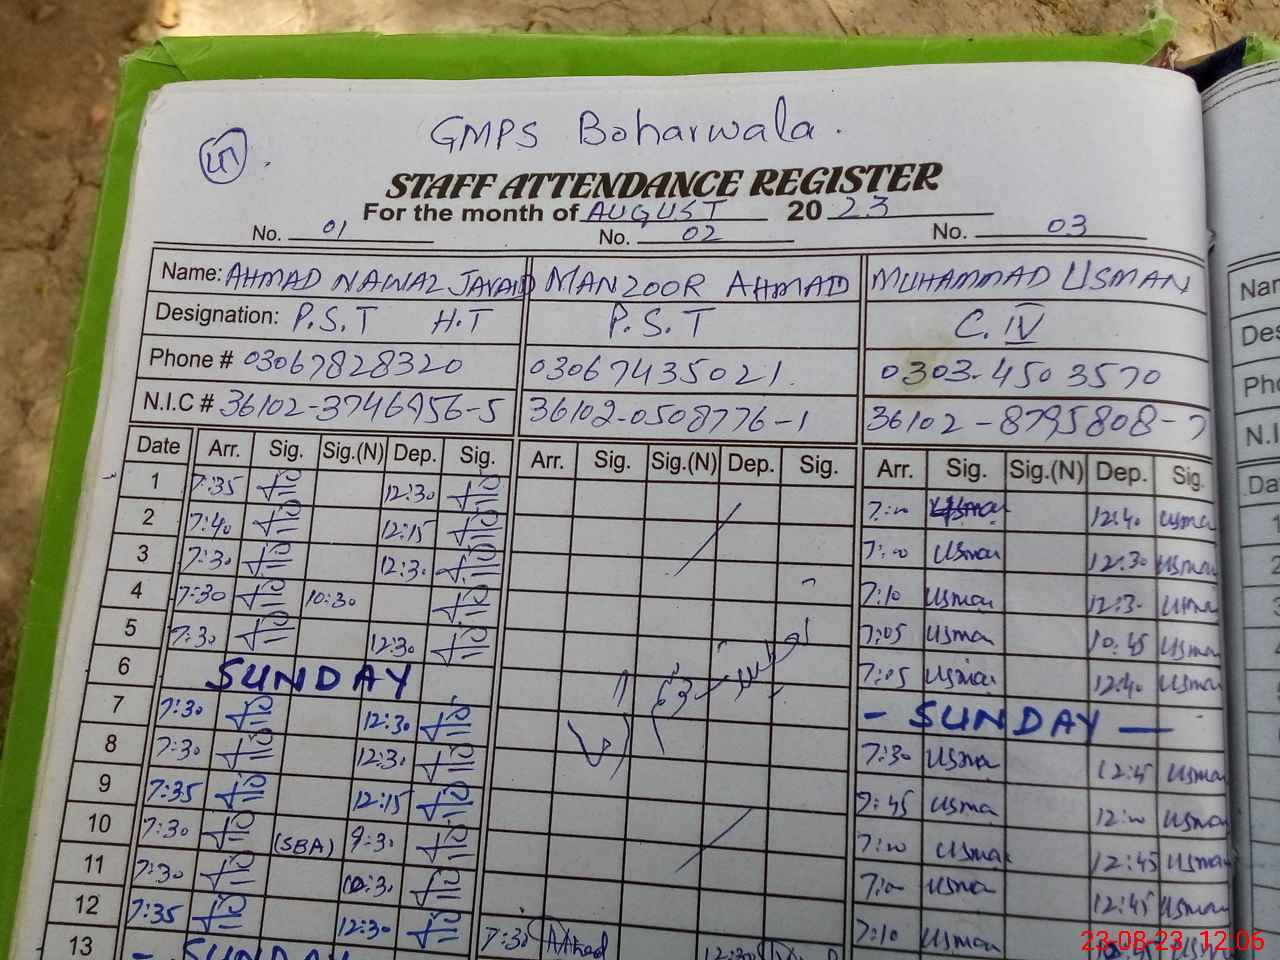 GMPS Boharwala.
STAFF ATTENDANCE REGISTER
For the month of AUGUST 20 23
No. 01 No. 02 No. 03
Name: AHMAD NAWAZ JAVAID MANZOOR AHMAD MUHAMMAD USMAN
Designation: P.S.T H.T P.S.T C.IV
Phone # 03067828320 03067435021. 0303-4503570
N.I.C # 36102-3746956-5 36102-0508776-1 36102-8795808-7
Date Arr. Sig. Sig.(N) Dep. Sig. Arr. Sig. Sig.(N) Dep. Sig. Arr. Sig. Sig.(N) Dep. Sig.
1 7:35 12:30 7:00 Usman 12:40 Usma
2 7:40 12:15 7:00 Usman 12:30 Usma
3 7:30 12:30 7:10 Usman 12:30 Usma
4 7:30 10:30 7:05 Usman 10:45 Usma
5 7:30 12:30 7:05 Usman 12:40 Usma
6 SUNDAY - SUNDAY —
7 7:30 12:30 7:30 Usman 12:45 Usma
8 7:30 12:30 7:45 Usma 12:00 Usma
9 7:35 12:15 7:00 Usman 12:45 Usma
10 7:30 (SBA) 9:30 7:00 Usman 12:45 Usma
11 7:30 10:30 7:10 Usman
12 7:35 12:30 7:30 Ahmad 12:30
13 - SUNDAY
Nar
Des
Pho
N.I
Da
23-08-23 12.06